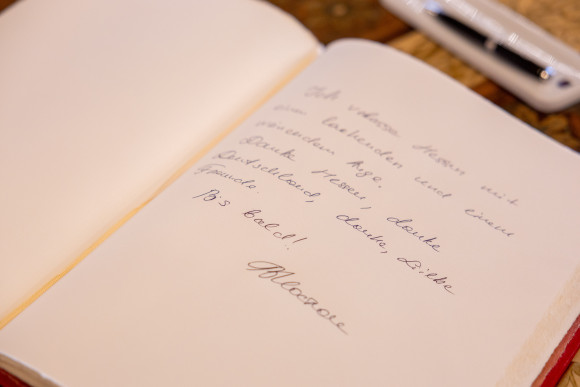 Ich verlasse Hessen mit
einem lachenden und einem
weinenden Auge.
Danke Hessen, danke
Deutschland, danke, Liebe
Freunde.
Bis bald!